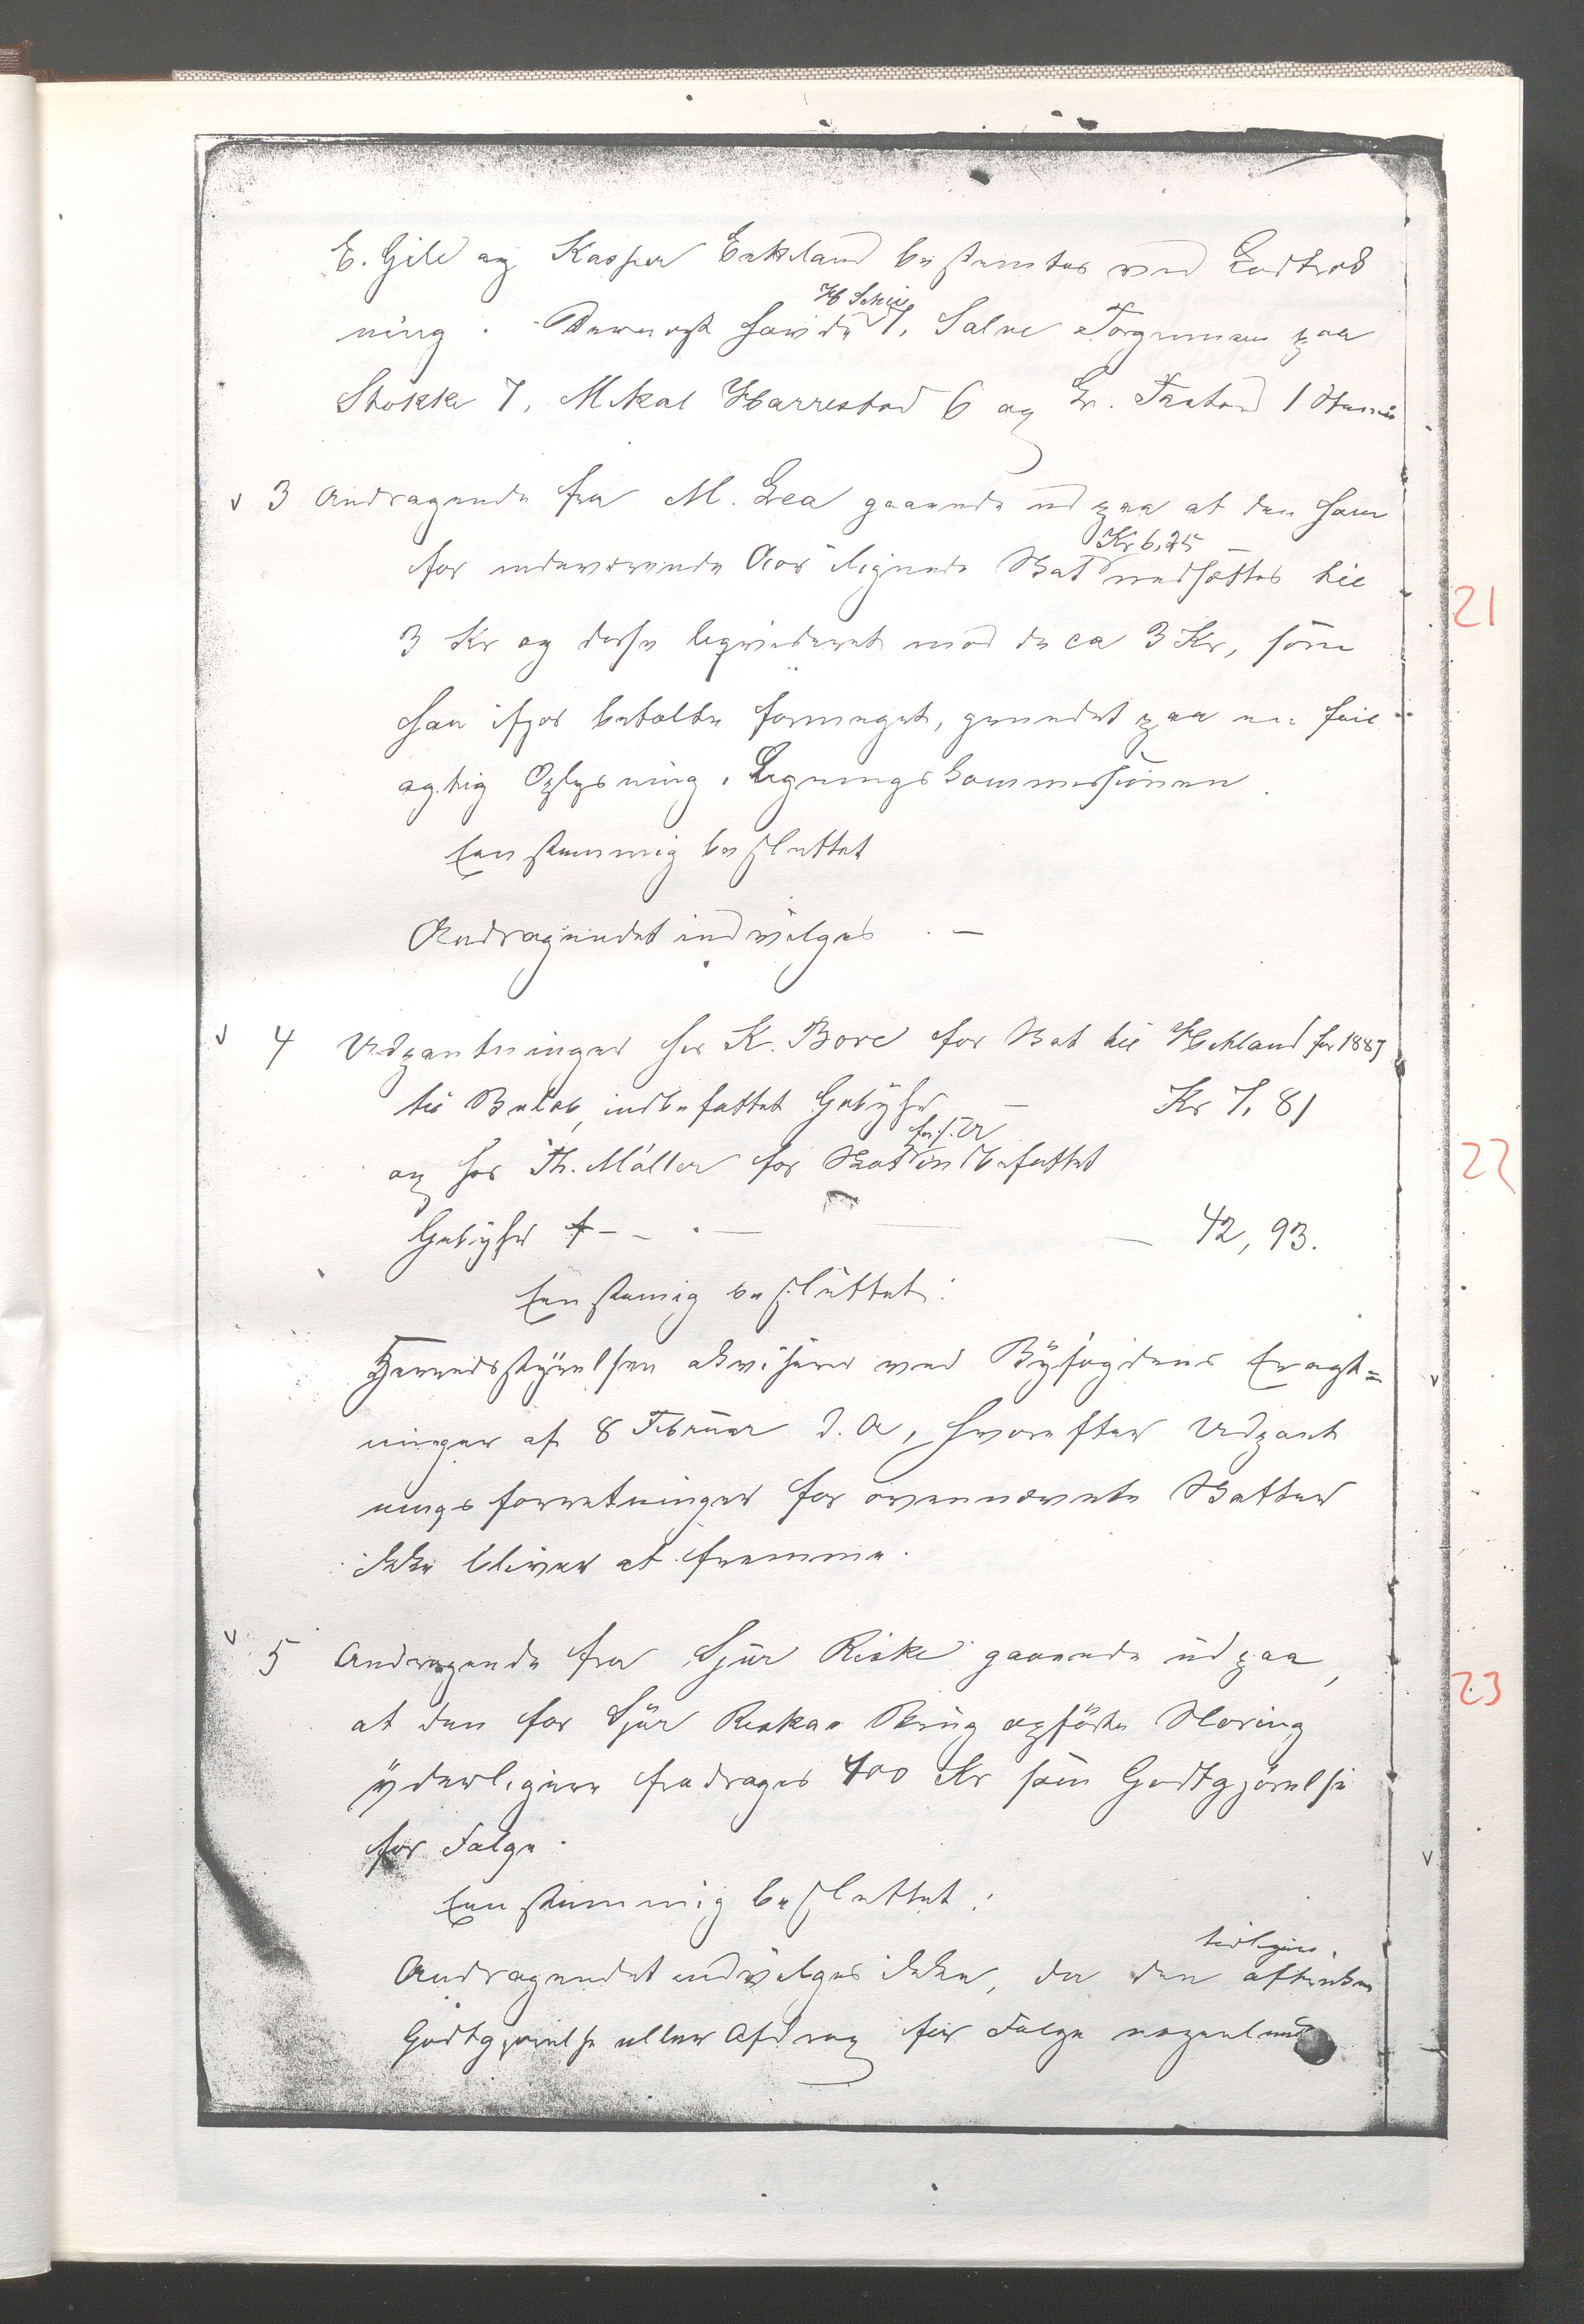 E. Gilé og Kasper Eskeland bestemtes ved Lodtræk
ning. Dernæst havde H Schie 7, Salve Torgersen paa
Stokke 7, Mikal Harrestad 6 og Gr. Tastad 1 Stemme
v 3 Andragende fra M. Lea gaaende ud paa at den ham
for indeværende Aar lignede Skat Kr 6,25 nedsættes til
21
3 Kr og disse liqvideret mod de ca 3 Kr, som
han ifjor betalte formeget, grundet paa en feil
agtig Oplysning i Ligningskommissionen.
Eenstemmig besluttet
Andragendet indvilges. —
v 4 Udpantninger hos K. Bore for Skat til Hetland for 1887
til Beløb, indbefattet Gebyhr — Kr 7,81
og hos Th. Møller for Skat for f. A indbefattet
22
Gebyhr — 42,93.
Eenstemig besluttet:
Herredsstyrelsen akviserer ved Byfogdens Eragt=
ninger af 8 Februar d. A, hvorefter Udpant
ningsforretninger for ovennævnte Skatter
ikke bliver at fremme.
v 5 Andragende fra Sjur Riske gaaende ud paa,
23
at den for Sjur Riskes Brug opførte Næring
yderligere fradrages 400 Kr som Godtgjørelse
for Følge.
Eenstemmig besluttet:
Andragendet indvilges ikke, da den tidligere
Godtgjørelse eller Afdrag for Følge